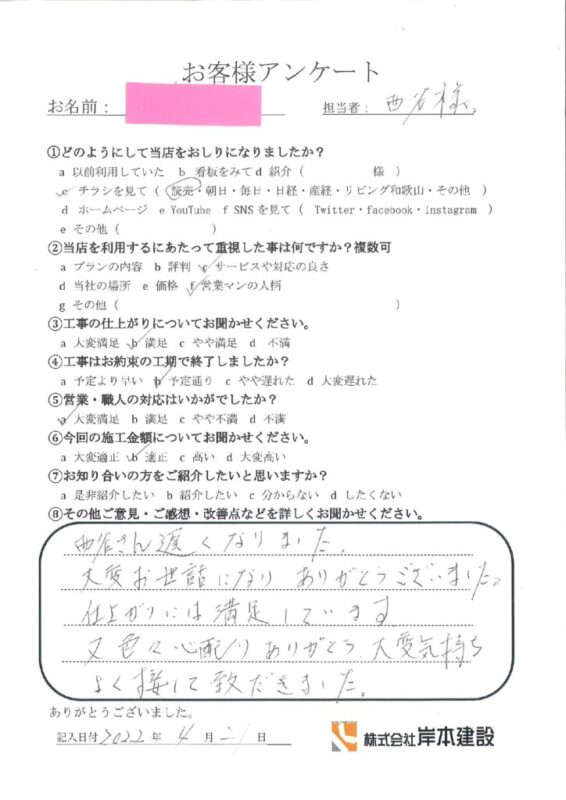 お客様アンケート
お名前：
担当者： 西谷様
①どのようにして当店をおしりになりましたか？
a 以前利用していた b 看板をみて d 紹介（ 様 ）
c チラシを見て（ 読売・朝日・毎日・日経・産経・リビング和歌山・その他 ）
d ホームページ e YouTube f SNSを見て（ Twitter・facebook・Instagram ）
e その他（ ）
②当店を利用するにあたって重視した事は何ですか？複数可
a プランの内容 b 評判 c サービスや対応の良さ
d 当社の場所 e 価格 f 営業マンの人柄
g その他（ ）
③工事の仕上がりについてお聞かせください。
a 大変満足 b 満足 c やや満足 d 不満
④工事はお約束の工期で終了しましたか？
a 予定より早い b 予定通り c やや遅れた d 大変遅れた
⑤営業・職人の対応はいかがでしたか？
a 大変満足 b 満足 c やや不満 d 不満
⑥今回の施工金額についてお聞かせください。
a 大変適正 b 適正 c 高い d 大変高い
⑦お知り合いの方をご紹介したいと思いますか？
a 是非紹介したい b 紹介したい c 分からない d したくない
⑧その他ご意見・ご感想・改善点などを詳しくお聞かせください。
西谷さん遅くなりました。
大変お世話になり ありがとうございました。
仕上がりには満足しています
又色々心配りありがとう 大変気持ち
よく接して致だきました。
ありがとうございました。
記入日付 2022 年 4 月 21 日
株式会社岸本建設